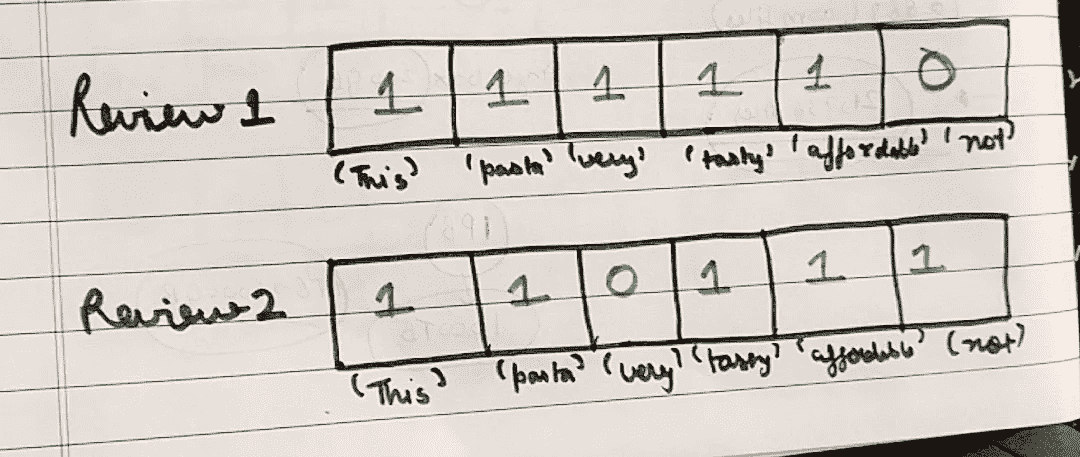 Review 1 1 1 1 1 1 0
(This) 'pasta' 'very' 'tasty' 'affordable' 'not'
Review 2 1 1 0 1 1 1
(This) 'pasta' 'very' 'tasty' 'affordable' (not)